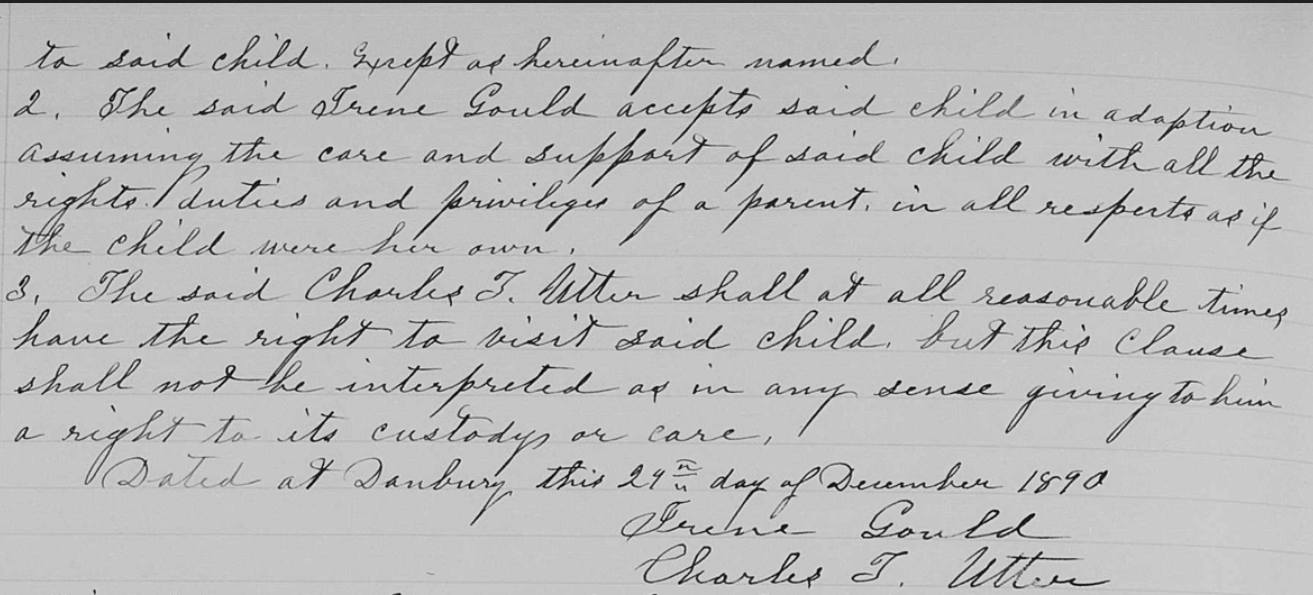 to said child. Except as hereinafter named.
2. The said Irene Gould accepts said child in adoption
assuming the care and support of said child with all the
rights. duties and privileges of a parent. in all respects as if
the child were her own.
3. The said Charles T. Utter shall at all reasonable times
have the right to visit said child. but this Clause
shall not be interpreted as in any sense giving to him
a right to its custody or care.
Dated at Danbury this day of December 1890
Irene Gould
Charles T. Utter